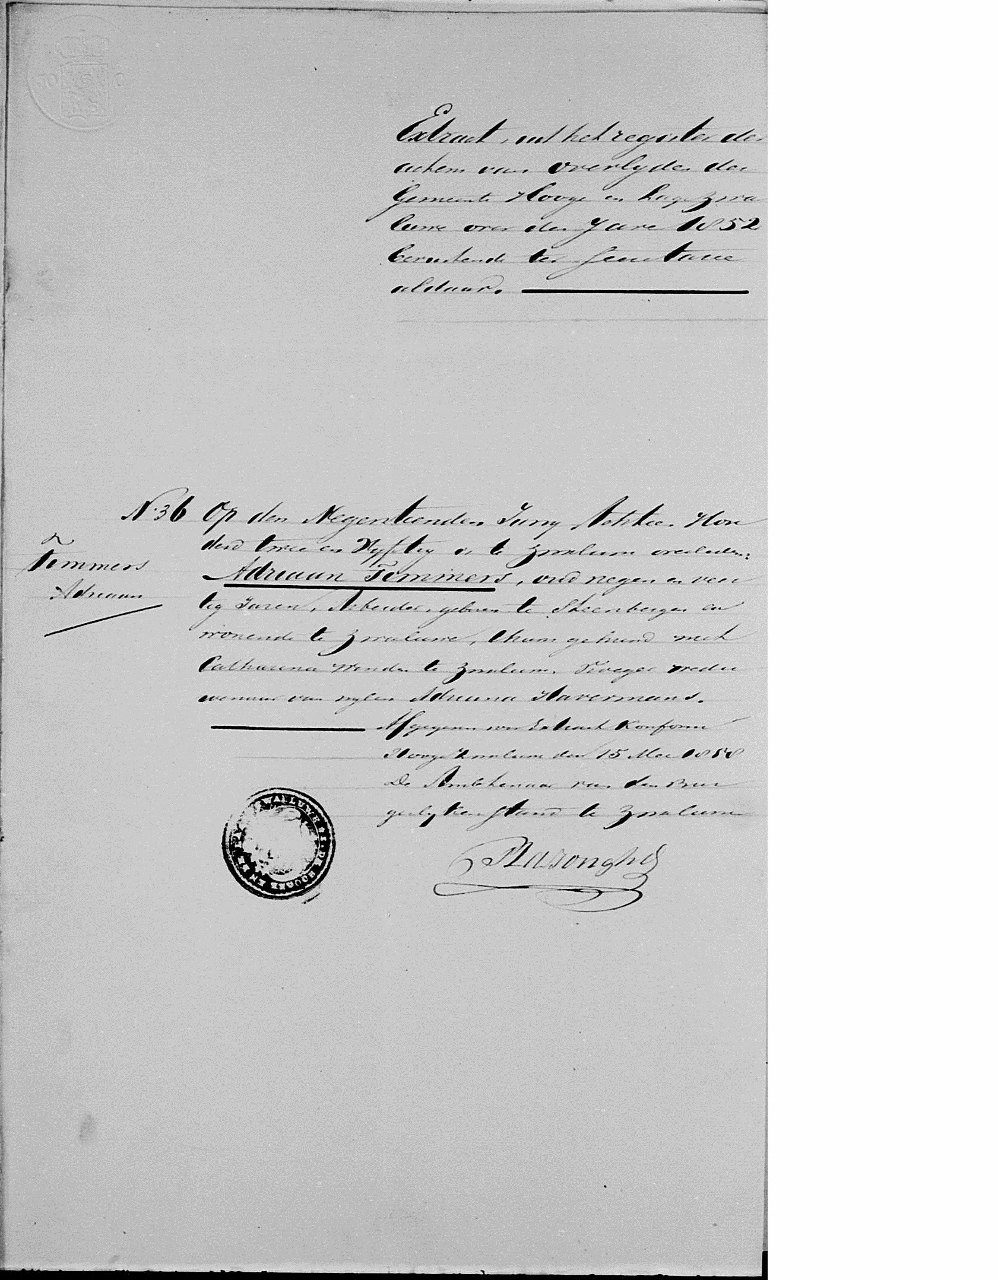 Extract uit het register der
acten van overlyden der
Gemeente Hooge en Lage Zwa
luwe over den Jare 1852
berustende ter Secretarie
aldaar.
N. 36 Op den Negentienden Juny Achttien Hon
derd twee en Vyftig is te Zwaluwe overleden:
Timmers
Adriaan
Adriaan Timmers, oud negen en veer
tig Jaren, Arbeider, geboren te Steenbergen en
wonende te Zwaluwe, thans gehuwd met
Catharina te Zwaluwe. Vroeger wedu
wenaar van wylen Adriana Havermans.
Afgegeven voor Extract Konform
Hooge Zwaluwe den 15 Mei 1858
De Ambtenaar van den Bur
gerlyken Stand te Zwaluwe